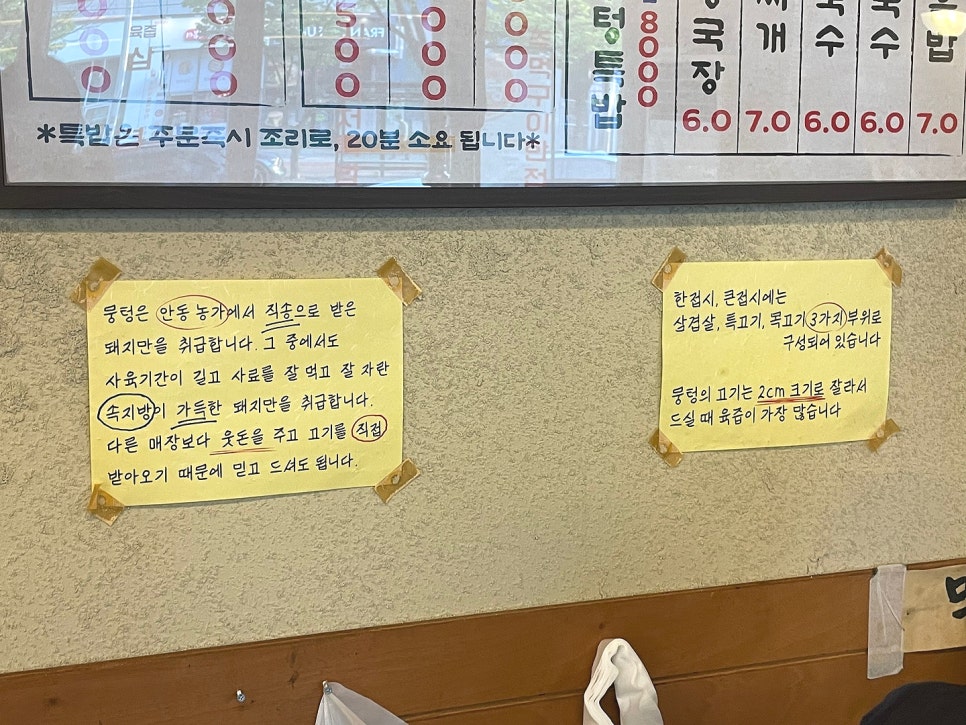 *특밥은 주문즉시 조리로, 20분 소요 됩니다*
텅특밥
8000
국장
찌개
국수
국수
밥
6.0 7.0 6.0 6.0 7.0
뭉텅은 안동 농가에서 직송으로 받은
돼지만을 취급합니다. 그 중에서도
사육기간이 길고 사료를 잘 먹고 잘 자란
속지방이 가득한 돼지만을 취급합니다.
다른 매장보다 웃돈을 주고 고기를 직접
받아오기 때문에 믿고 드셔도 됩니다.
한접시, 큰접시에는
삼겹살, 특고기, 목고기 3가지 부위로
구성되어 있습니다
뭉텅의 고기는 2cm 크기로 잘라서
드실 때 육즙이 가장 많습니다